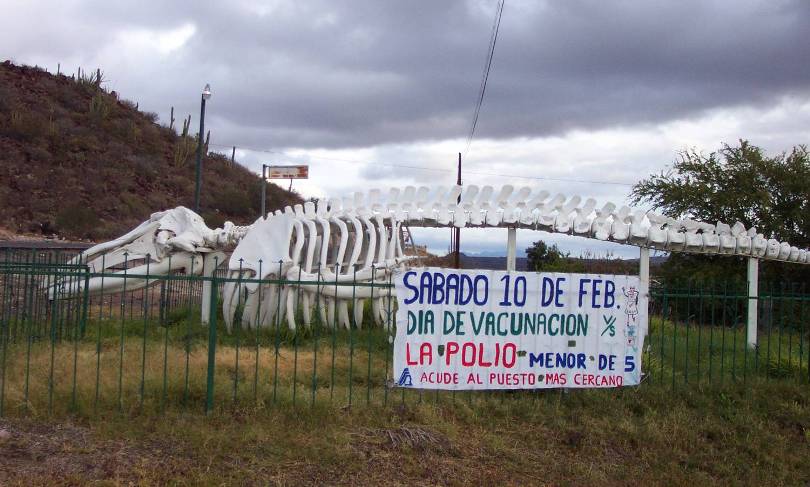 SABADO 10 DE FEB.
DIA DE VACUNACION %
LA POLIO MENOR DE 5
ACUDE AL PUESTO MAS CERCANO